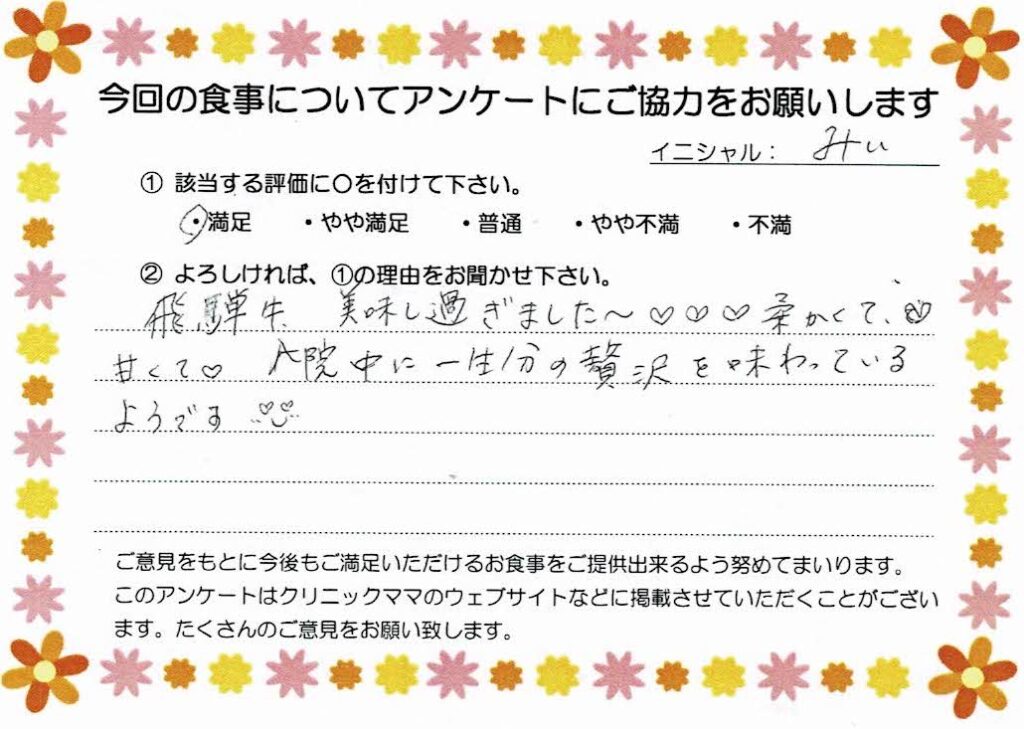 今回の食事についてアンケートにご協力をお願いします
イニシャル： みぃ
① 該当する評価に〇を付けて下さい。
・満足 ・やや満足 ・普通 ・やや不満 ・不満
② よろしければ、①の理由をお聞かせ下さい。
飛騨牛 美味し過ぎました～♡♡♡柔かくて、
甘くて♡ 入院中に一生分の贅沢を味わっている
ようです
ご意見をもとに今後もご満足いただけるお食事をご提供出来るよう努めてまいります。
このアンケートはクリニックママのウェブサイトなどに掲載させていただくことがござい
ます。たくさんのご意見をお願い致します。